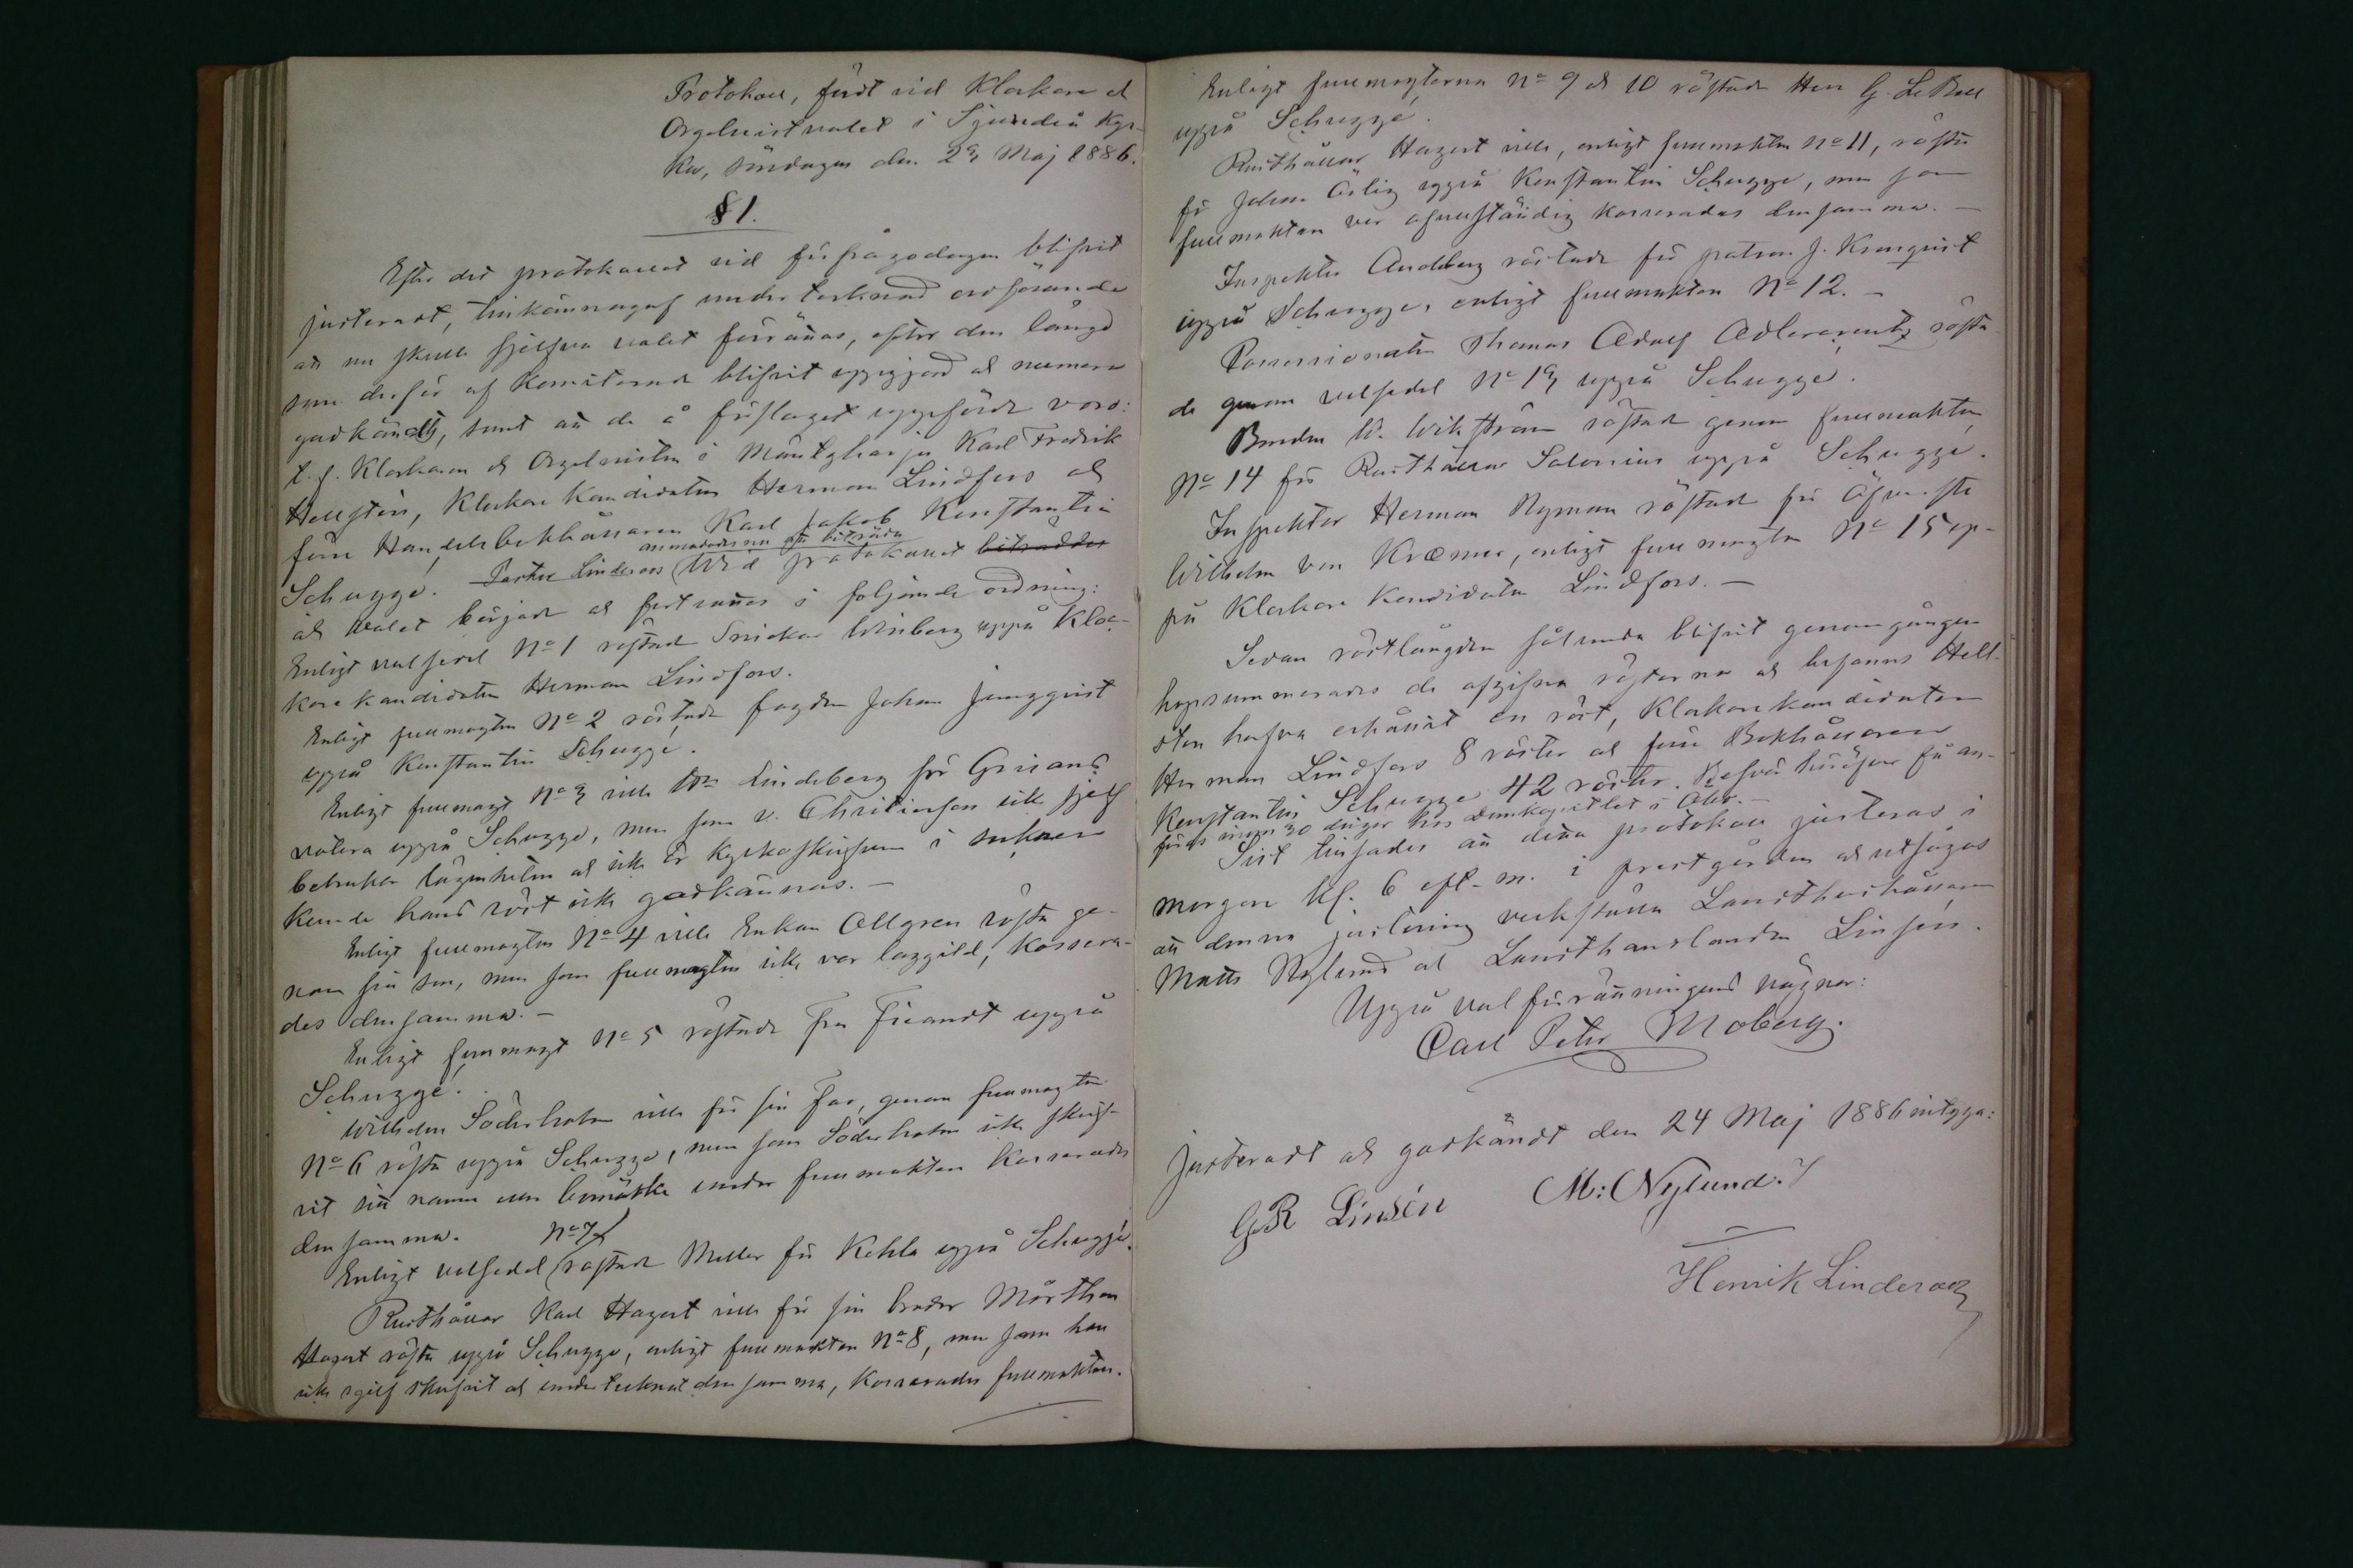 Protokoll, fördt vid Klockare och
Orgelnistvalet i Sjundeå Kyr-
ka, söndagen den 23 Maj 1886.
§ 1.
Efter det protokollet vid förfrågodagen blifvit
justeradt, tillkännagaf undertecknad ordförande
att nu skulle sjelfva valet förrättas, efter den längd
som derför af Komiterade blifvit uppgjord och numera
godkändts, samt att de å förslaget uppförde voro:
t. f. Klockaren och Orgelnisten i Mäntyharju Karl Fredrik
Hellsten, Klockare Kandidaten Herman Lindfors och
förre Handelsbokhållaren Karl Jakob Konstantin
Schugge. Pastor Linderoos anmodades nu att biträda
vid protokollet biträddes
och valet börjades och fortsattes i följande ordning:
Enligt valsedel No 1 röstade Snickar Winberg uppå Kloc-
kare kandidaten Herman Lindfors.
Enligt fullmagten No 2 röstade fogden Johan Ljungqvist
uppå Konstantin Schugge.
Enligt fullmagt No 3 ville Wm Lindeberg för Grisans
votera uppå Schugge, men som v. Christierson icke sjelf
betrakter lägenheten och icke är Kyrkoskrifven i socknen
kunde hans röst icke godkännas. –
Enligt fullmagten No 4 ville Enkan Allgren rösta ge-
nom sin son, men som fullmagten icke var laggild, kassera-
des densamma. –
Enligt fullmagt No 5 röstade Fru Ficandt uppå
Schugge.
Wilhelm Söderholm ville för sin Far, genom fullmagten
No 6 rösta uppå Schugge, men som Söderholm icke skrif-
vit sitt namn eller bomärke under fullmakten kasserades
densamma.
Enligt valsedel No 7 röstade Meller för Kehla uppå Schugge.
Rusthållar Karl Hagert ville för sin broder Mårthen
Hagert rösta uppå Schugge, enligt fullmakten No 8, men som han
icke sjelf skrifvit och undertecknat densamma, kasserades fullmakten.
Enligt fullmagterna No 9 och 10 röstade Herr G. Le Bell
uppå Schugge.
Rusthållar Hagert ville, enligt fullmakten No 11, rösta
för Johan Ärlig uppå Konstantin Schugge, men som
fullmakten var ofullständig kasserades densamma. –
Inspektor Andeberg röstade för patron J. Kronqvist
uppå Schugge, enligt fullmakten No 12. –
Possessionaten Thomas Adolf Adlercreutz rösta-
de genom valsedel No 13 uppå Schugge.
Bonden W. Wikström röstade genom fullmakten
No 14 för Rusthållar Salenius uppå Schugge.
Inspektor Herman Nyman röstade för Öfverste
Wilhelm von Kræmer, enligt fullmagten No 15 up-
på Klockare Kandidaten Lindfors. –
Sedan röstlängden sålunda blifvit genomgången
hopsummerades de afgifna rösterna och befanns Hell-
sten hafva erhållit en röst, Klockarekandidaten
Herman Lindfors 8 röster och förre Bokhållaren
Konstantin Schugge 42 röster. Besvär häröfver få an-
föras inom 30 dagar hos Domkapitlet i Åbo. –
Sist tillsades att detta protokoll justeras i
morgon kl. 6 eft. m. i prestgården och utsågos
att denna justering verkställa Lanthushållaren
Matts Nylund och Landthandlanden Linsén.
Uppå valförrättningens vägnar:
Carl Peter Moberg.
Justeradt och godkändt den 24 Maj 1886 intyga:
GR Linsén M: Nylund.
Henrik Linderoos